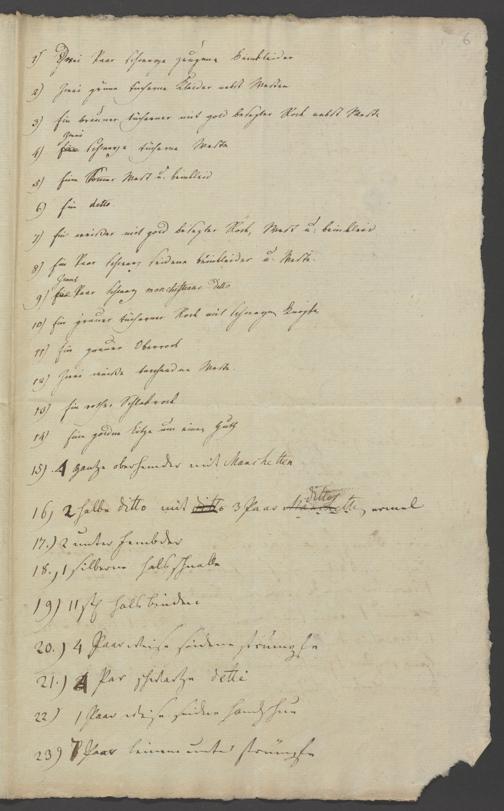 6
1) Drei Paar schwarze zeugene Beinkleider
2) Zwei grüne tucherne Kleider nebst Westen
3) Ein brauner tucherner mit gold besezter Rock nebst Weste
zwei
4) schwarze tucherne Weste
5) Eine Sommer West u. beinkleid
6) Ein detto
7) Ein weisser mit gold besezter Rock, West u. beinkleid
8) Ein Paar schwarz seidene beinkleider u. Weste
9) Paar schwarz manchesterne detto
10) Ein grauer tucherner Rock mit schwarzen Knöpfe
11) Ein grauer Oberrock
12) Zwei weisse Weste
13) Ein rother Schlafrock
14) Eine goldne Litze um einen Huth
15) 4 gantze oberhemder mit Manchetten
16) 2 halbe ditto mit ditto 3 Paar ditto ermel
17.) 2 unter hembder
18.) 1 silberne halsschnalle
19) 11 stk halsbinden
20.) 4 Paar weise seidene strümpfe
21.) 4 Par schwartze detti
22) 1 Paar weise seidne handschue
23) Paar leinene unter strümpfe